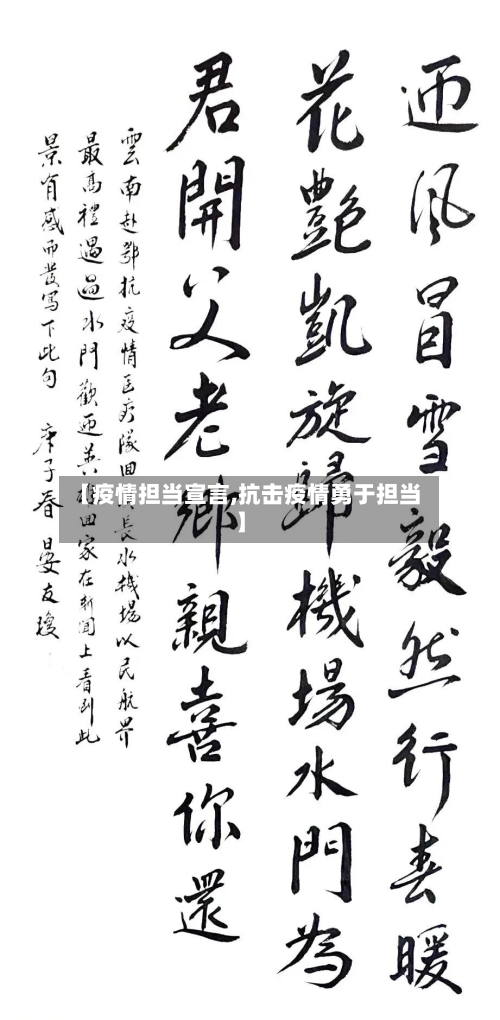 迊风冒雪毅然行春暖
花艷凱旋歸機場水門為
君開父老鄉親喜你還
雲南赴鄂抗疫情医疗隊回長水機場以民航界
最高禮遇過水門歡迊英雄回家在新闻上看到此
景有感而發写下此句 庚子春晏友瓊
【疫情担当宣言,抗击疫情勇于担当
】